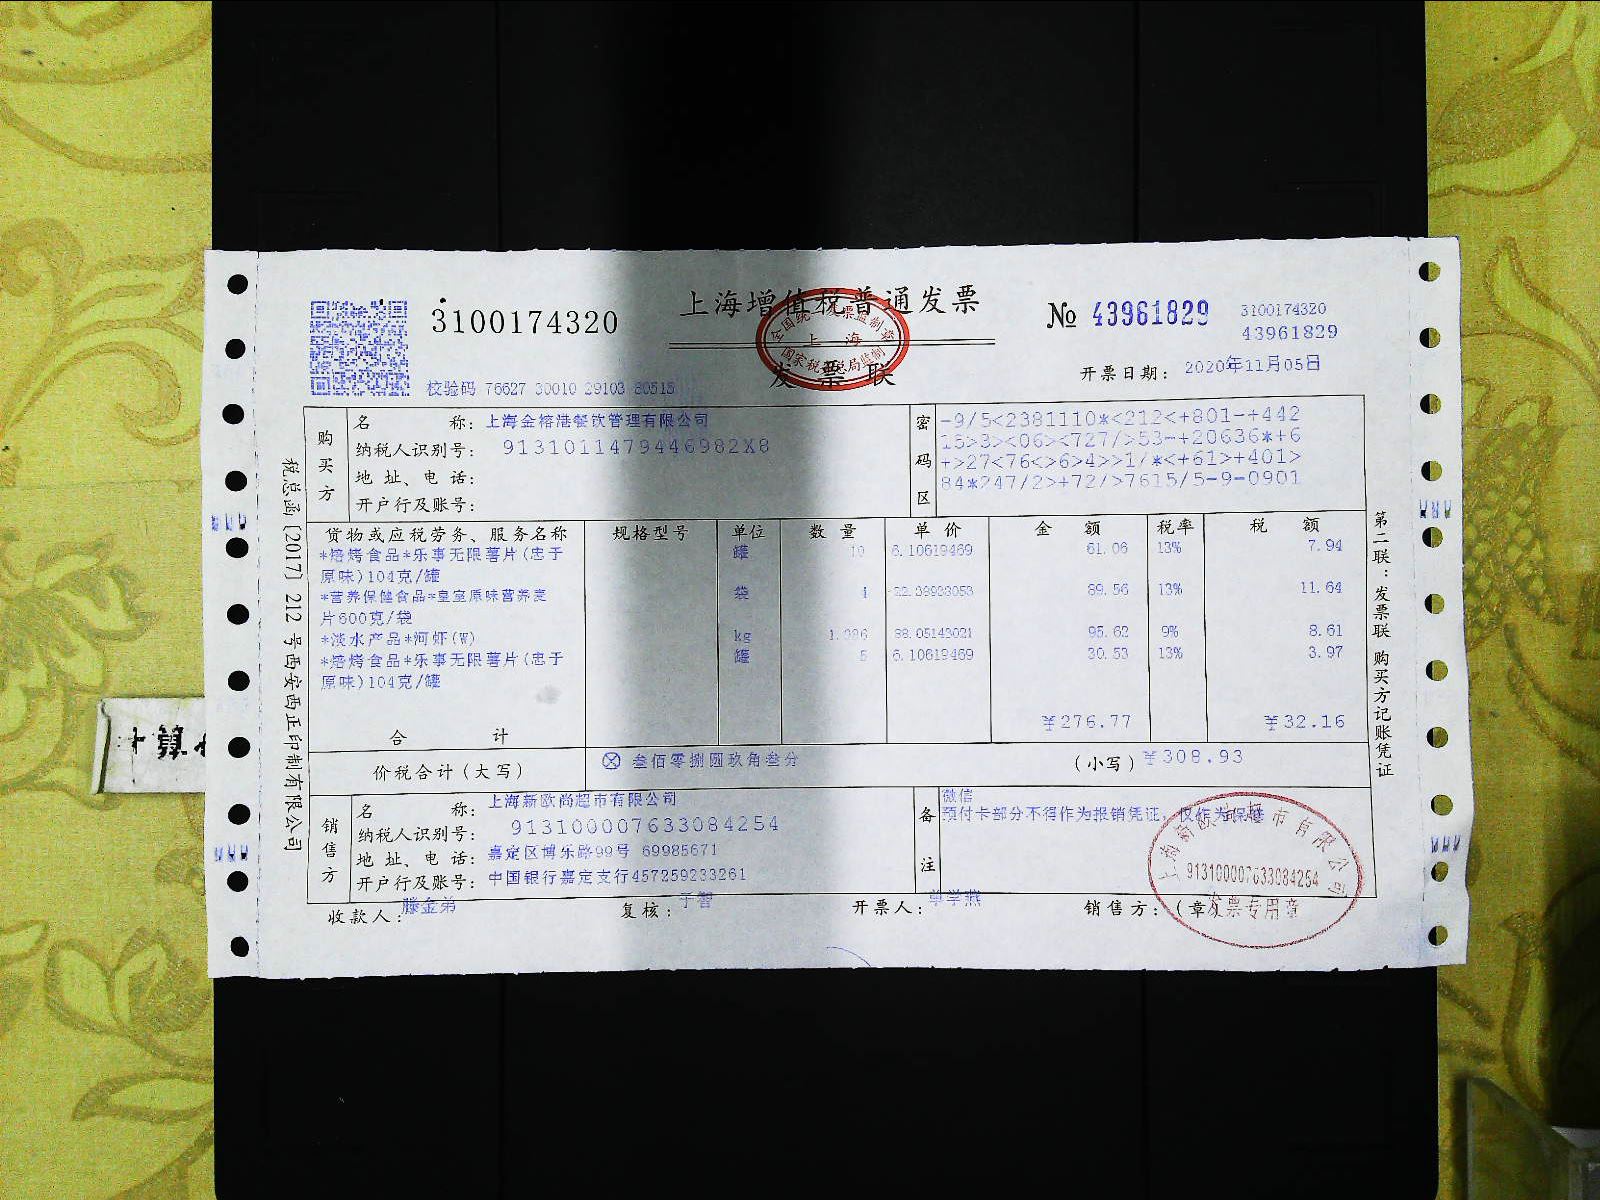 3100174320
上海增值税普通发票
全国统一发票监制章
上海
国家税务总局监制
发票联
№ 43961829
3100174320
43961829
校验码 76627 30010 29103 80515
开票日期: 2020年11月05日
购买方
名称: 上海金榕港餐饮管理有限公司
纳税人识别号: 9131011479446982X8
地址、电话:
开户行及账号:
密码区
-9/5<2381110*<212<+801-+442
15>3><06><727/>53-+20636*+6
+>27<76<>6>4>>1/*<+61>+401>
84*247/2>+72/>7615/5-9-0901
货物或应税劳务、服务名称 规格型号 单位 数量 单价 金额 税率 税额
*焙烤食品*乐事无限薯片(忠于 罐 10 6.10619469 61.06 13% 7.94
原味)104克/罐
*营养保健食品*皇室原味营养麦 袋 4 22.38938053 89.56 13% 11.64
片600克/袋
*淡水产品*河虾(W) kg 1.086 88.05143021 95.62 9% 8.61
*焙烤食品*乐事无限薯片(忠于 罐 5 6.10619469 30.53 13% 3.97
原味)104克/罐
合计 ¥276.77 ¥32.16
价税合计(大写) ⊗ 叁佰零捌圆玖角叁分 (小写) ¥308.93
销售方
名称: 上海新欧尚超市有限公司
纳税人识别号: 913100007633084254
地址、电话: 嘉定区博乐路99号 69985671
开户行及账号: 中国银行嘉定支行457259233261
备注
微信
预付卡部分不得作为报销凭证,仅作为保修
上海新欧尚超市有限公司
913100007633084254
发票专用章
收款人: 滕金弟 复核: 于智 开票人: 单学燕 销售方:(章)
税总函[2017] 212 号西安西正印制有限公司
第二联:发票联 购买方记账凭证